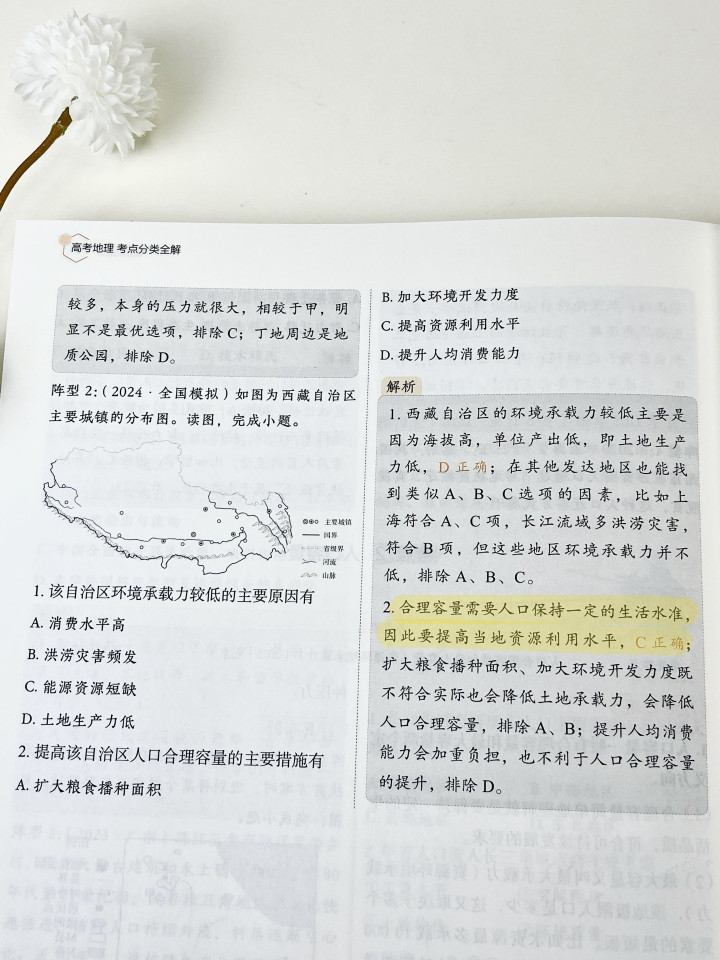 高考地理 考点分类全解
较多，本身的压力就很大，相较于甲，明
显不是最优选项，排除C；丁地周边是地
质公园，排除D。
阵型2：（2024·全国模拟）如图为西藏自治区
主要城镇的分布图。读图，完成小题。
主要城镇
国界
省级界
河流
山脉
1. 该自治区环境承载力较低的主要原因有
A. 消费水平高
B. 洪涝灾害频发
C. 能源资源短缺
D. 土地生产力低
2. 提高该自治区人口合理容量的主要措施有
A. 扩大粮食播种面积
B. 加大环境开发力度
C. 提高资源利用水平
D. 提升人均消费能力
解析
1. 西藏自治区的环境承载力较低主要是
因为海拔高，单位产出低，即土地生产
力低，D正确；在其他发达地区也能找
到类似A、B、C选项的因素，比如上
海符合A、C项，长江流域多洪涝灾害，
符合B项，但这些地区环境承载力并不
低，排除A、B、C。
2. 合理容量需要人口保持一定的生活水准，
因此要提高当地资源利用水平，C正确；
扩大粮食播种面积、加大环境开发力度既
不符合实际也会降低土地承载力，会降低
人口合理容量，排除A、B；提升人均消费
能力会加重负担，也不利于人口合理容量
的提升，排除D。